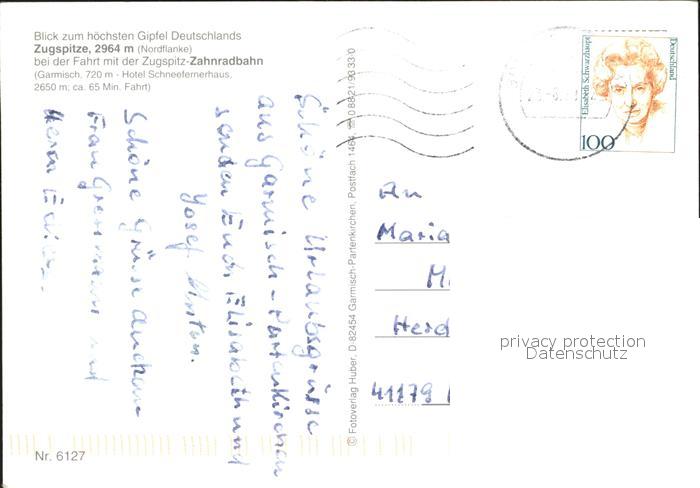 Blick zum höchsten Gipfel Deutschlands
Zugspitze, 2964 m (Nordflanke)
bei der Fahrt mit der Zugspitz-Zahnradbahn
(Garmisch, 720 m - Hotel Schneefernerhaus,
2650 m; ca. 65 Min. Fahrt)
Schöne Urlaubsgrüsse
aus Garmisch-Partenkirchen
senden Euch Elisabeth und
Josef
Schöne Grüsse auch an
Frau und
Herrn
Nr. 6127
© Fotoverlag Huber, D-82454 Garmisch-Partenkirchen, Postfach 1464, ☎ 0 88 21/93 33 0
Elisabeth Schwarzhaupt
Deutschland
100
An
Maria
M
Herd
41179
privacy protection
Datenschutz